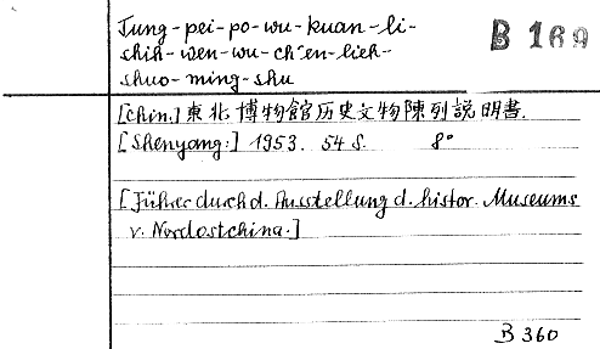 Tung-pei-po-wu-kuan-li-
shih-wen-wu-ch'en-lieh-
shuo-ming-shu
B 169
[Chin.] 東北博物館历史文物陳列説明書.
[Shenyang:] 1953. 54 S. 8°
[Führer durch d. Ausstellung d. histor. Museums
v. Nordostchina.]
B 360